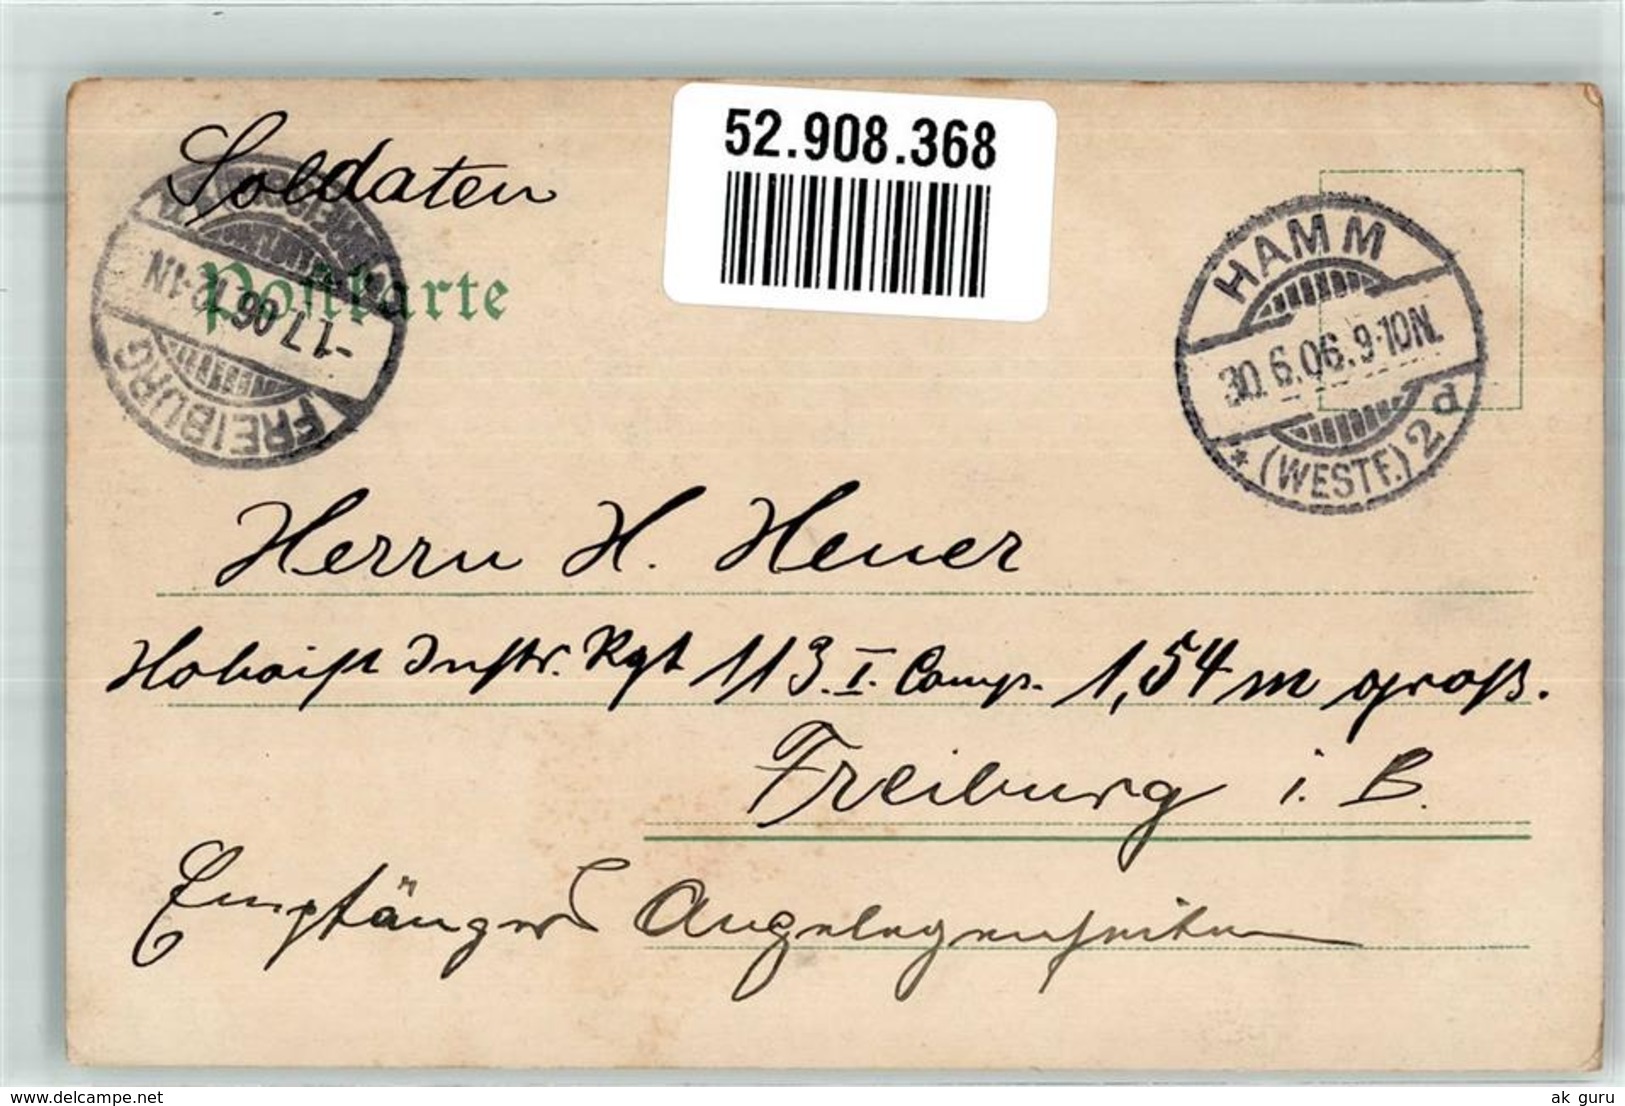 Soldaten
52.908.368
Postkarte
FREIBURG
-1.7.06. 12-1N
HAMM
30.6.06.9-10N.
* (WESTF.) 2 d
Herrn H. Heuer
Hoboist Inftr. Rgt 113. I. Comp. 1,54 m groß.
Freiburg i. B.
Empfängers Angelegenheiten
delcampe.net
ak guru